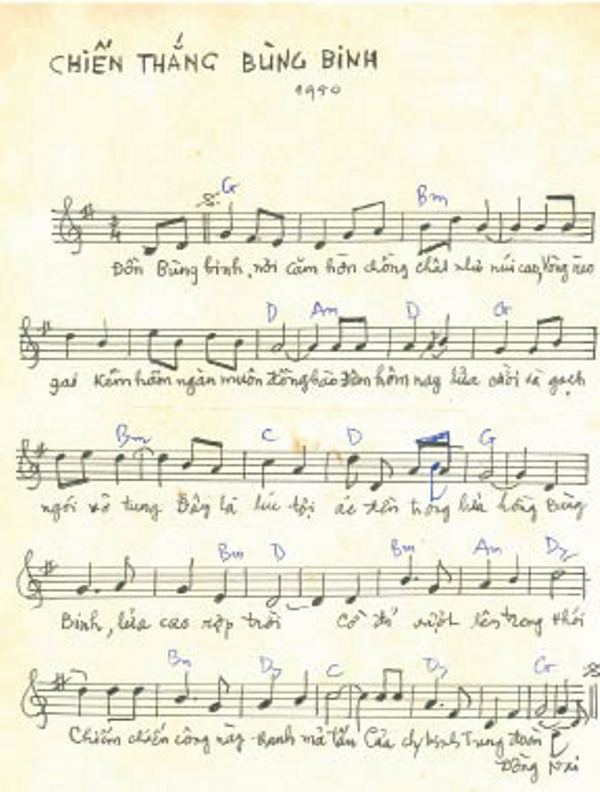 CHIẾN THẮNG BÙNG BINH
1980
G Bm
Đồn Bùng binh, nơi căm hờn chồng chất như núi cao, Vòng rào
D Am D G
gai kềm hãm ngàn muôn đồng bào Đêm hôm nay lửa và gạch
Bm C D G
ngói vỡ tung Đây là lúc tội ác trong lửa hồng Bùng
Bm D Bm Am D7
Binh, lửa cao rợp trời Cờ đỏ vượt lên trong khói
Bm D7 C D7 G
Chiếm chiến công này Của Trung đoàn
Đồng Nai